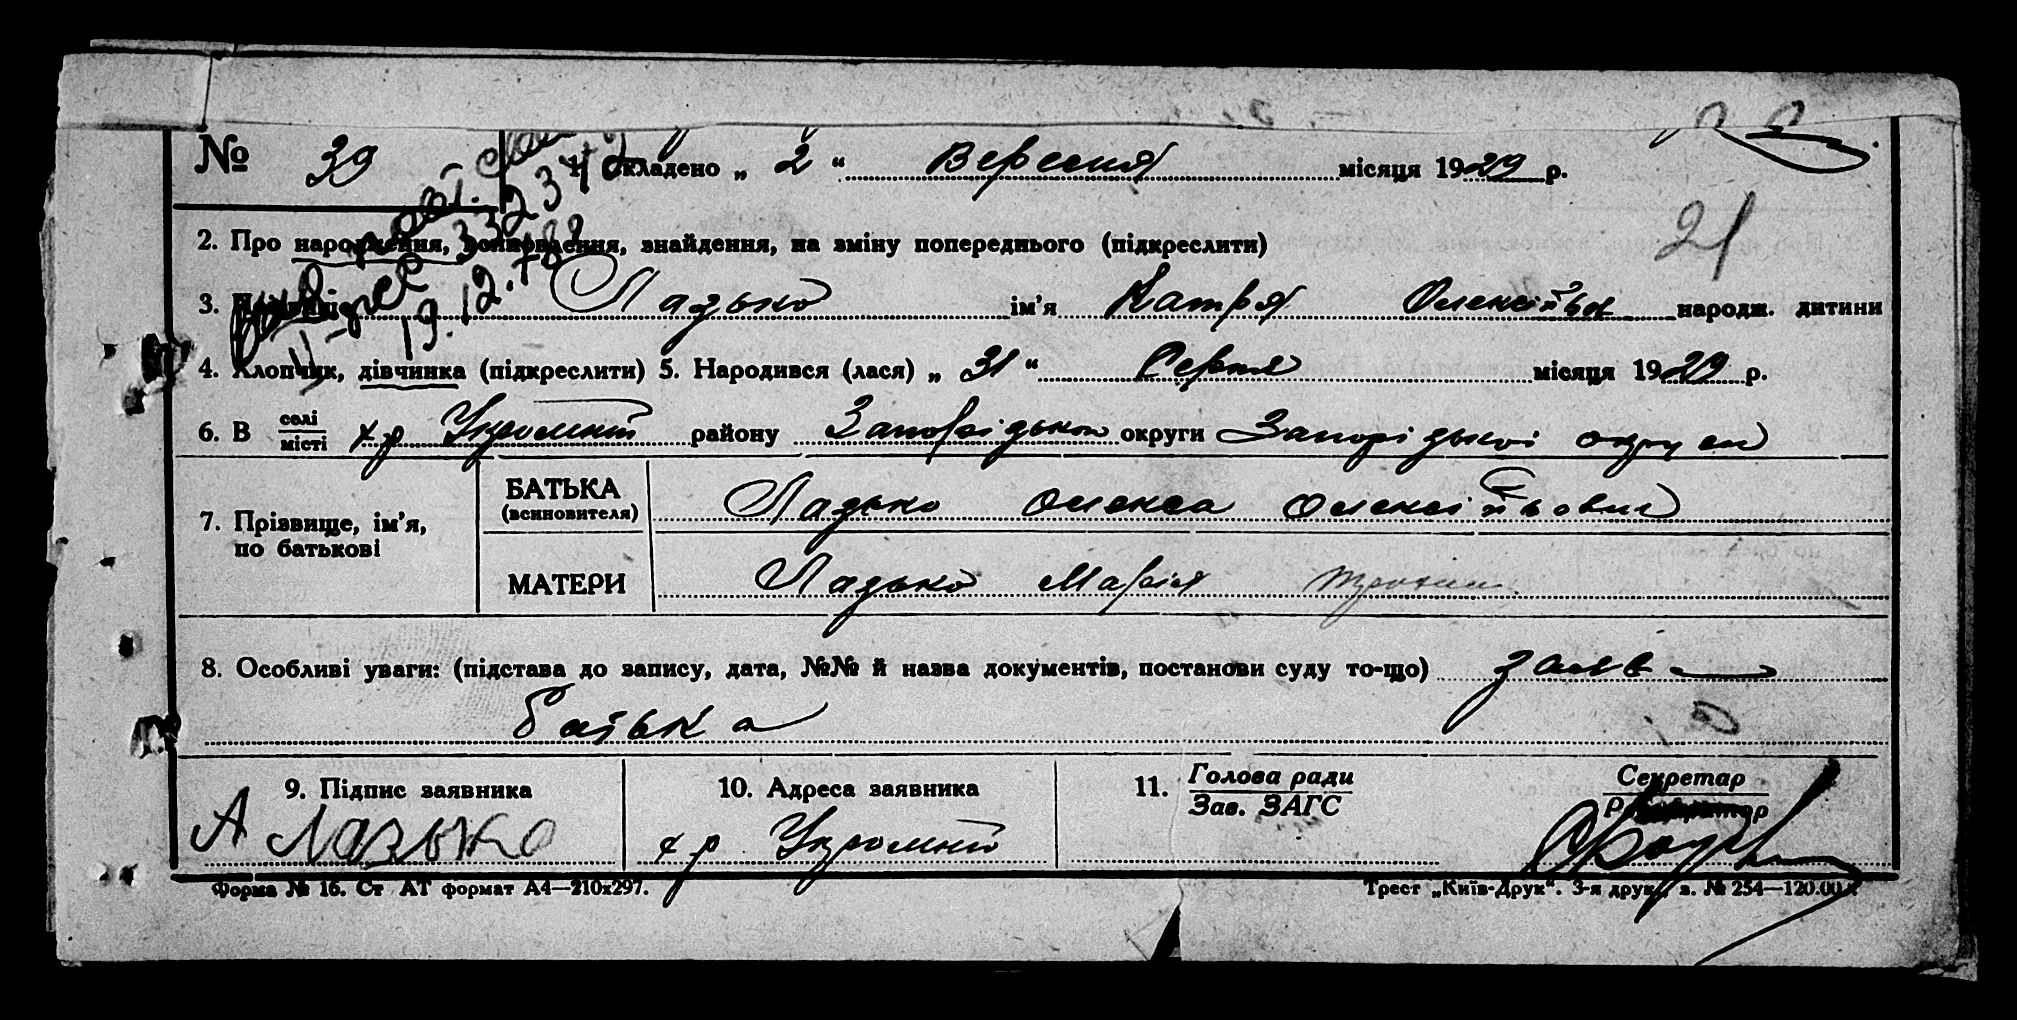 № 39 1. Складено „ 2 “ Вересня місяця 1929 р.
21
2. Про народження, всиновлення, знайдення, на зміну попереднього (підкреслити)
19.12.78
3. Прізвище Ладько ім’я Катря Олексіївна народж. дитини
4. Хлопчик, дівчинка (підкреслити) 5. Народився (лася) „ 31 “ Серпня місяця 1929 р.
6. В селі місті хр району Запорізького округи Запорізької округи
7. Прізвище, ім’я, по батькові
БАТЬКА (всиновителя) Ладько Олекса Олексійович
МАТЕРИ Ладько Марія
8. Особливі уваги: (підстава до запису, дата, №№ й назва документів, постанови суду то-що) заява
батька
9. Підпис заявника 10. Адреса заявника 11. Голова ради Зав. ЗАГС Секретар
А Ладько хр
Форма № 16. Ст АТ формат А4—210х297. Трест „Київ-Друк“. 3-я друк., з. № 254—120.00